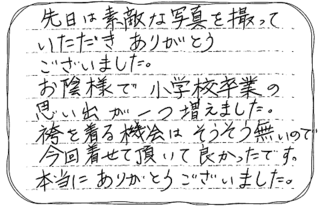 先日は素敵な写真を撮って
いただき ありがとう
ございました。
お陰様で 小学校卒業の
思い出が一つ増えました。
袴を着る機会は そうそう無いので
今回着せて頂いて良かったです。
本当に ありがとうございました。